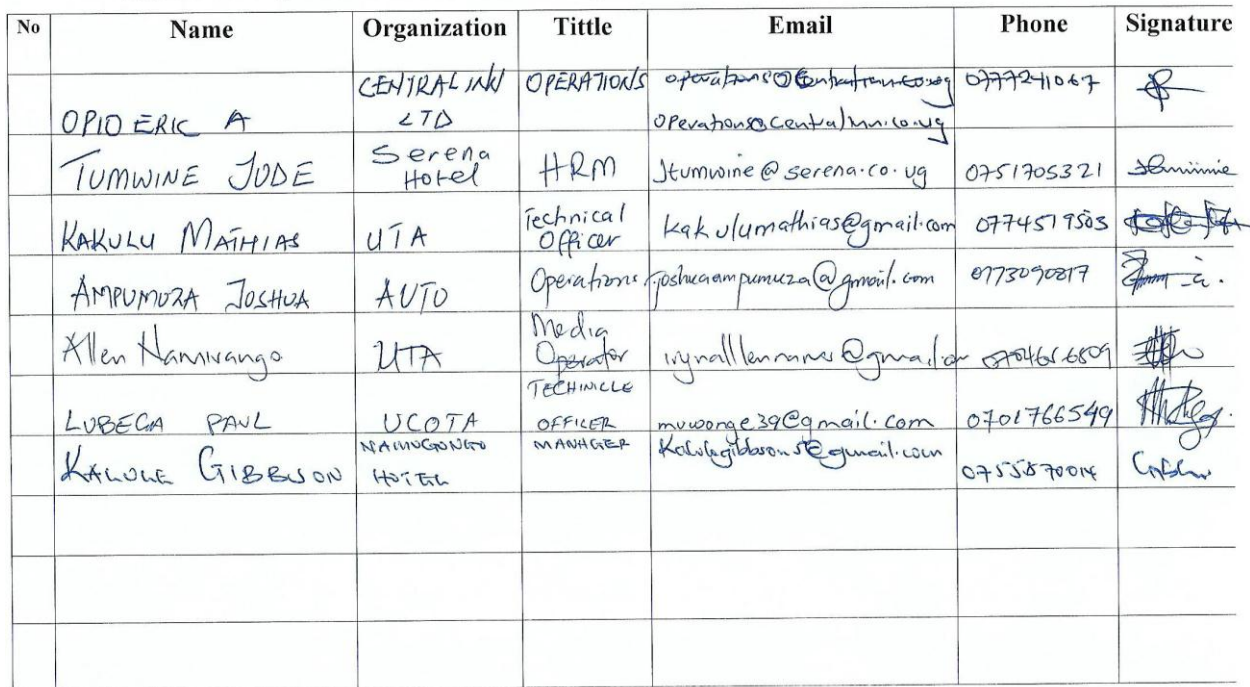 No Name Organization Tittle Email Phone Signature
OPIO ERIC A CENTRAL INN LTD OPERATIONS operations@centralinn.co.ug 0777241067
TUMWINE JUDE Serena Hotel HRM Jtumwine@serena.co.ug 0751705321
KAKULU MATHIAS UTA Technical Officer kakulumathias@gmail.com 0774519503
AMPUMUZA JOSHUA AUTO Operations joshuaampumuza@gmail.com 0773090817
Allen UTA Media Operator
LUBEGA PAUL UCOTA TECHINICLE OFFICER muwonge39@gmail.com 0701766549
KALULE GIBBSON NAMUGONGO HOTEL MANAGER Kalulegibbsons@gmail.com